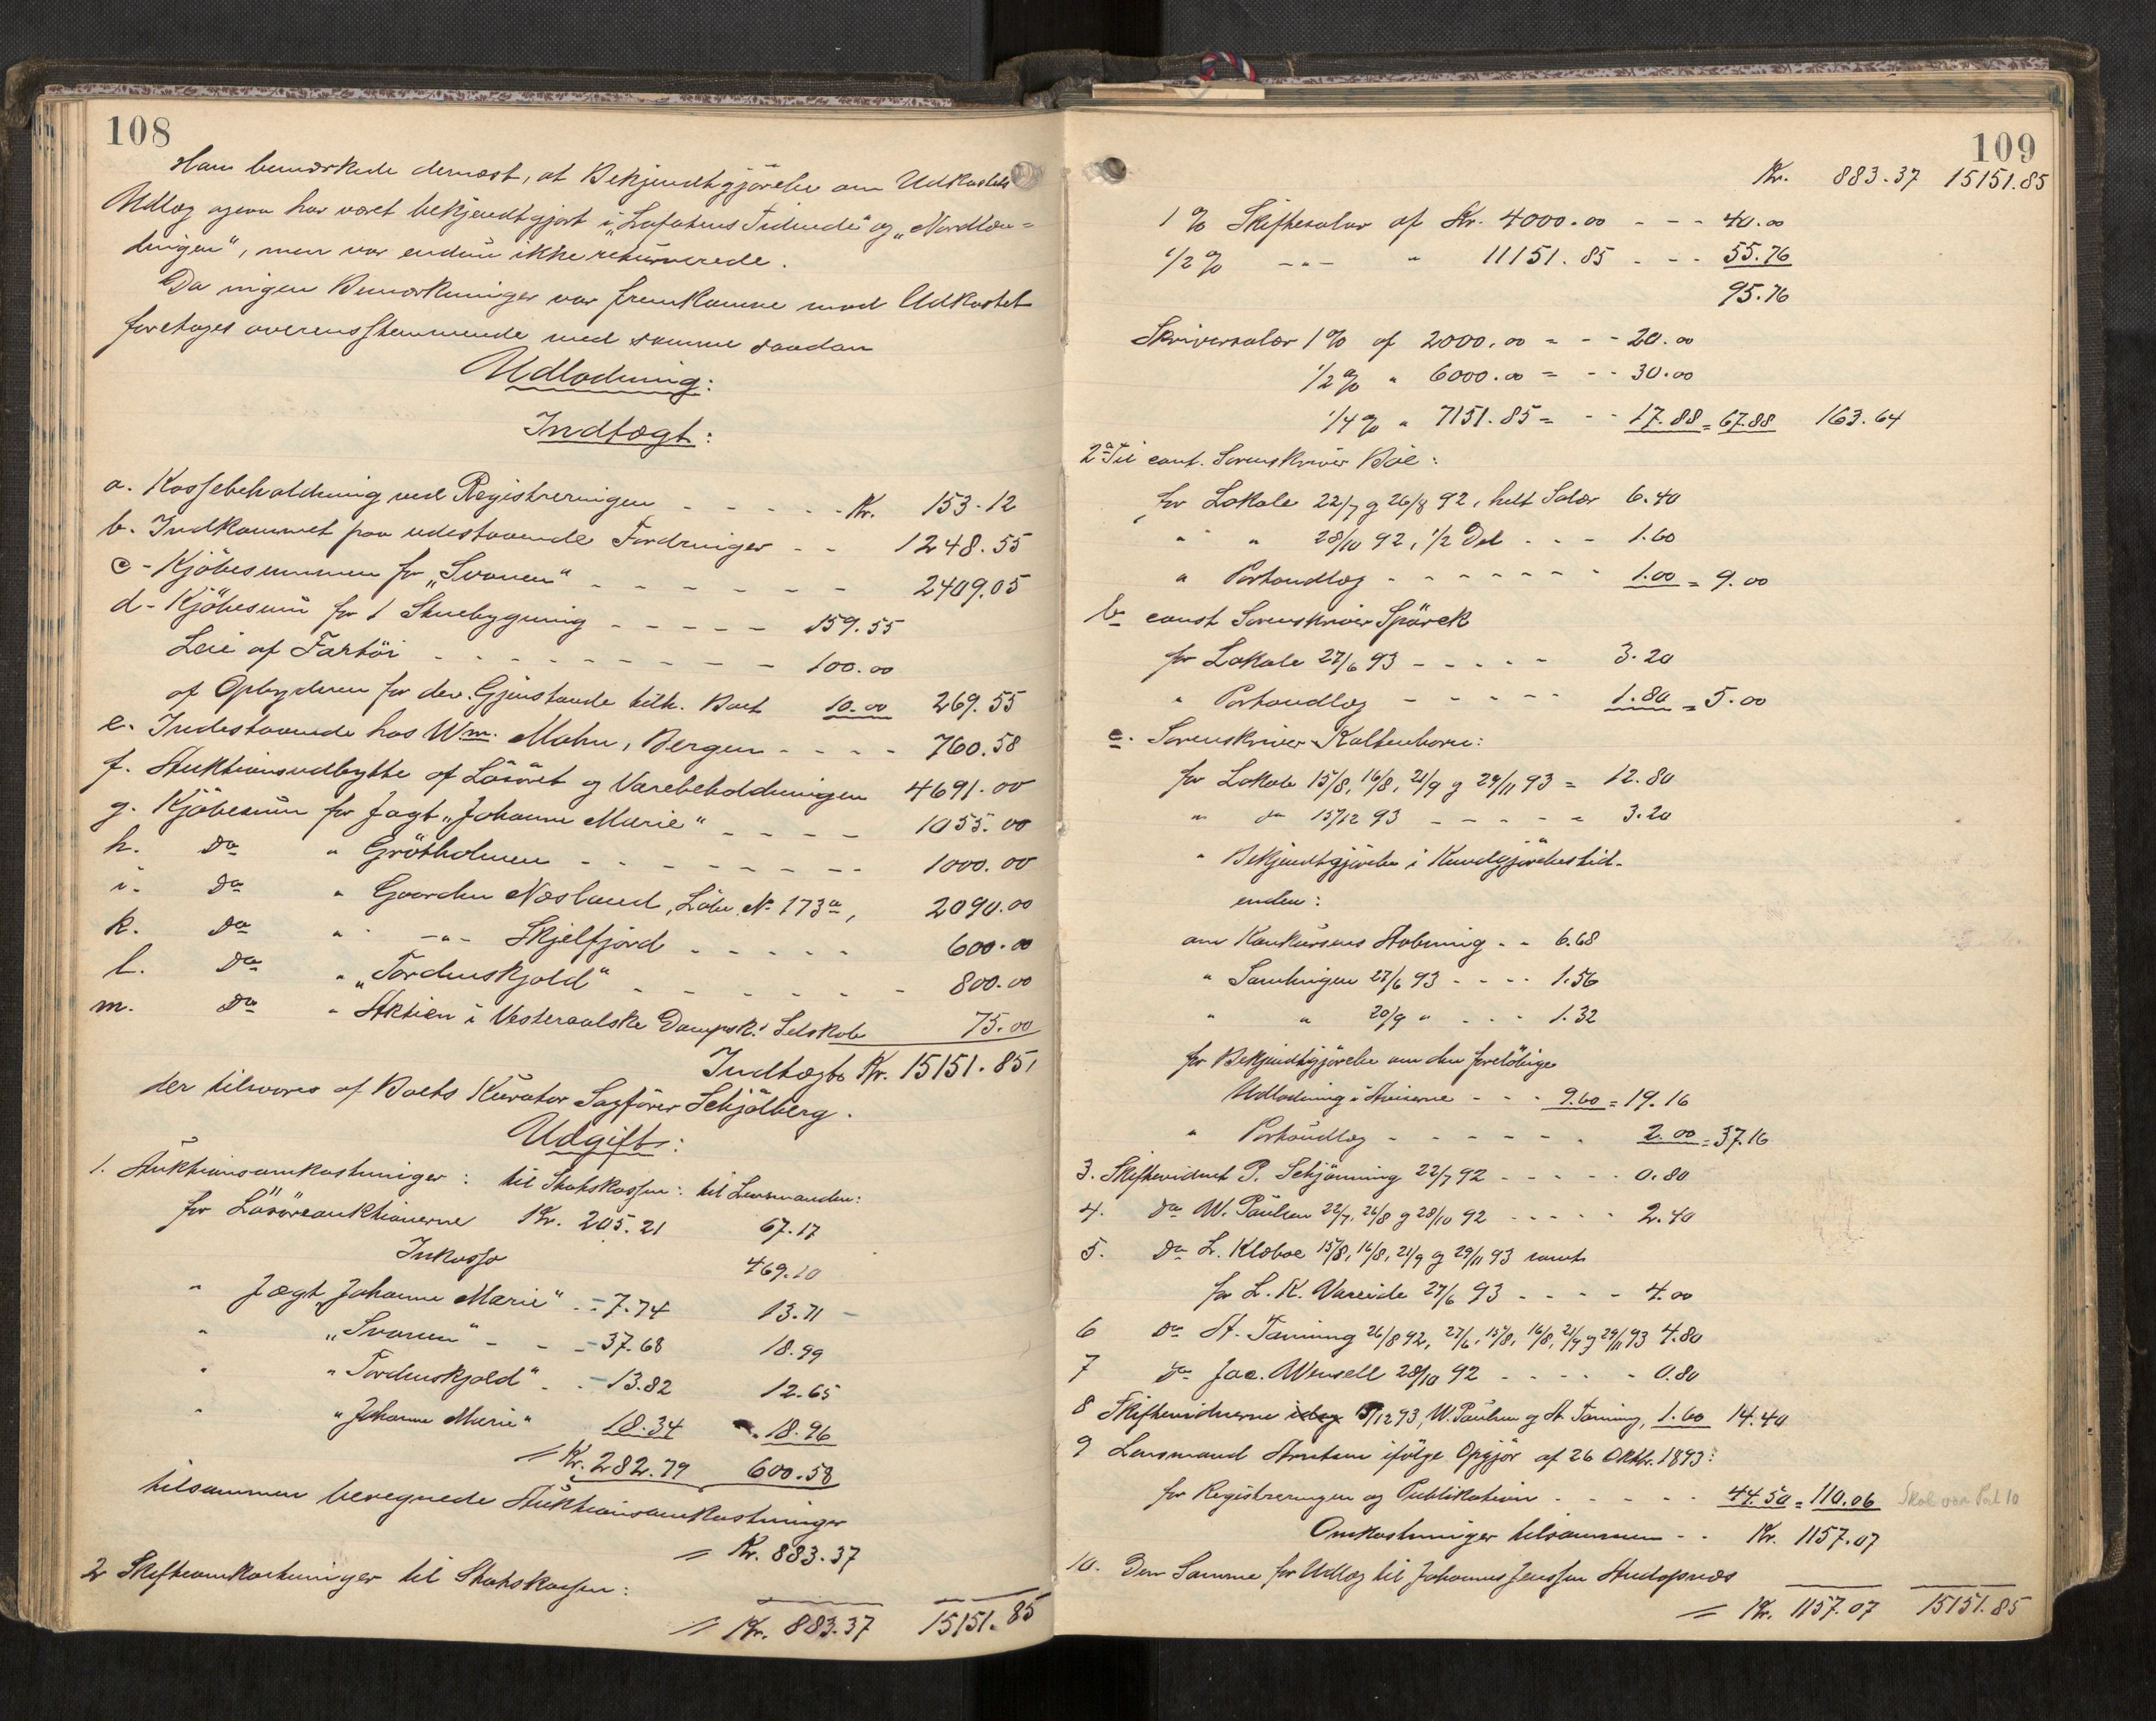 108
Han bemærkede dernæst, at Bekjendtgjørelse om Udkastets
Udlæg ogsaa har været bekjendtgjort i „Lofotens Tidende" og „Nordlæn=
dingen", men var endnu ikke returnerede.
Da ingen Bemærkninger var fremkomne mod Udkastet
foretages overensstemmende med samme saadan
Udlodning:
Indtægt:
a. Kassebeholdning ved Registreringen - - - - - Kr. 153.12
b. Indkommet paa udestaaende Fordringer - - 1248.55
c - Kjöbesummen for „Svanen" - - - - - - - 2409.05
d - Kjöbesum for 1 Stuebygning - - - - - 159.55
Leie af Fartöi - - - - - - - - - - 100.00
af Opbyderen for div. Gjenstande tilh. Boet 10.00 269.55
e. Indestaaende hos Wm. Mohn, Bergen - - - - 760.58
f. Auktionsudbytte af Lösöret og Varebeholdningen 4691.00
g. Kjöbesum for Jagt „Johanne Marie" - - - - 1055.00
h. do " Grötholmen - - - - - - - - 1000.00
i. do " Gaarden Næsland, Löbe No 173a, 2090.00
k. do " -"- Skjelfjord - - - - - 600.00
l. do " „Tordenskjold" - - - - - - - 800.00
m. do " Aktien i Vesteraalske Dampsk. Selskab 75.00
Indtægt Kr. 15151.85,
der tilsvares af Boets Kurator Sagförer Schjölberg.
Udgift:
1. Auktionsomkostninger: til Statskassen: til Lensmanden:
for Lösöreauktionerne Kr. 205.21 67.17
Inkasso 469.10
" Jægt „Johanne Marie" - - 7.74 13.71 -
" „Svanen" - - - 37.68 18.99
" „Tordenskjold" - - 13.82 12.65
" „Johanne Marie" 18.34 18.96
= Kr. 282.79 600.58
tilsammen beregnede Auktionsomkostninger
= Kr. 883.37
2 Skifteomkostninger til Statskassen:
= Kr. 883.37 15151.85
109
Kr. 883.37 15151.85
1 % Skiftesalær af Kr. 4000.00 - - - 40.00
1/2 % -"- " 11151.85 - - - 55.76
95.76
Skriversalær 1% af 2000.00 = - - 20.00
1/2 % " 6000.00 = - - 30.00
1/4 % " 7151.85 = - - 17.88 = 67.88 163.64
2 a Til const. Sorenskriver Böe:
for Lokale 22/7 og 26/8 92, helt Salær 6.40
" " " 28/10 92, 1/2 Del - - - 1.60
" Portoudlæg - - - - - - - 1.00 = 9.00
b const Sorenskriver Spörck
for Lokale 27/6 93 - - - - - 3.20
" Portoudlæg - - - - - 1.80 = 5.00
c. Sorenskriver Kaltenborn:
for Lokale 15/8, 16/8, 21/9 og 29/11 93 = 12.80
" do 15/12 93 - - - - - 3.20
" Bekjendtgjörelse i Kundgjörelsestid-
enden:
om Konkursens Aabning - - 6.68
" Samlingen 27/6 93 - - - - 1.56
" " 20/9 " - - - 1.32
for Bekjendtgjörelse om den forelöbige
Udlodning i Aviserne - - - 9.60 = 19.16
" Portoudlæg - - - - - - - 2.00 = 37.16
3. Skiftevidnet P. Schjönning 22/7 92 - - - - - 0.80
4. do W. Paulsen 22/7, 26/8 og 28/10 92 - - - - - 2.40
5. do L. Klæboe 15/8, 16/8, 21/9 og 29/11 93 samt
for L. K. Vareide 27/6 93 - - - - 4.00
6 do A. Tanning 26/8 92, 27/6, 15/8, 16/8, 21/9 og 29/11 93 4.80
7 do Jac. Wensell 28/10 92 - - - - - 0.80
8 Skiftevidnerne 15/12 93, W. Paulsen og A. Tanning, 1.60 14.40
9 Lensmand Arntsen ifölge Opgjör af 26 Oktbr. 1893:
for Registreringen og Publikation - - - - - 44.50 = 110.06 Skal være Post 10
Omkostninger tilsammen - - Kr. 1157.07
10. Den Samme for Udlæg til Johannes Jenssen
= Kr. 1157.07 15151.85